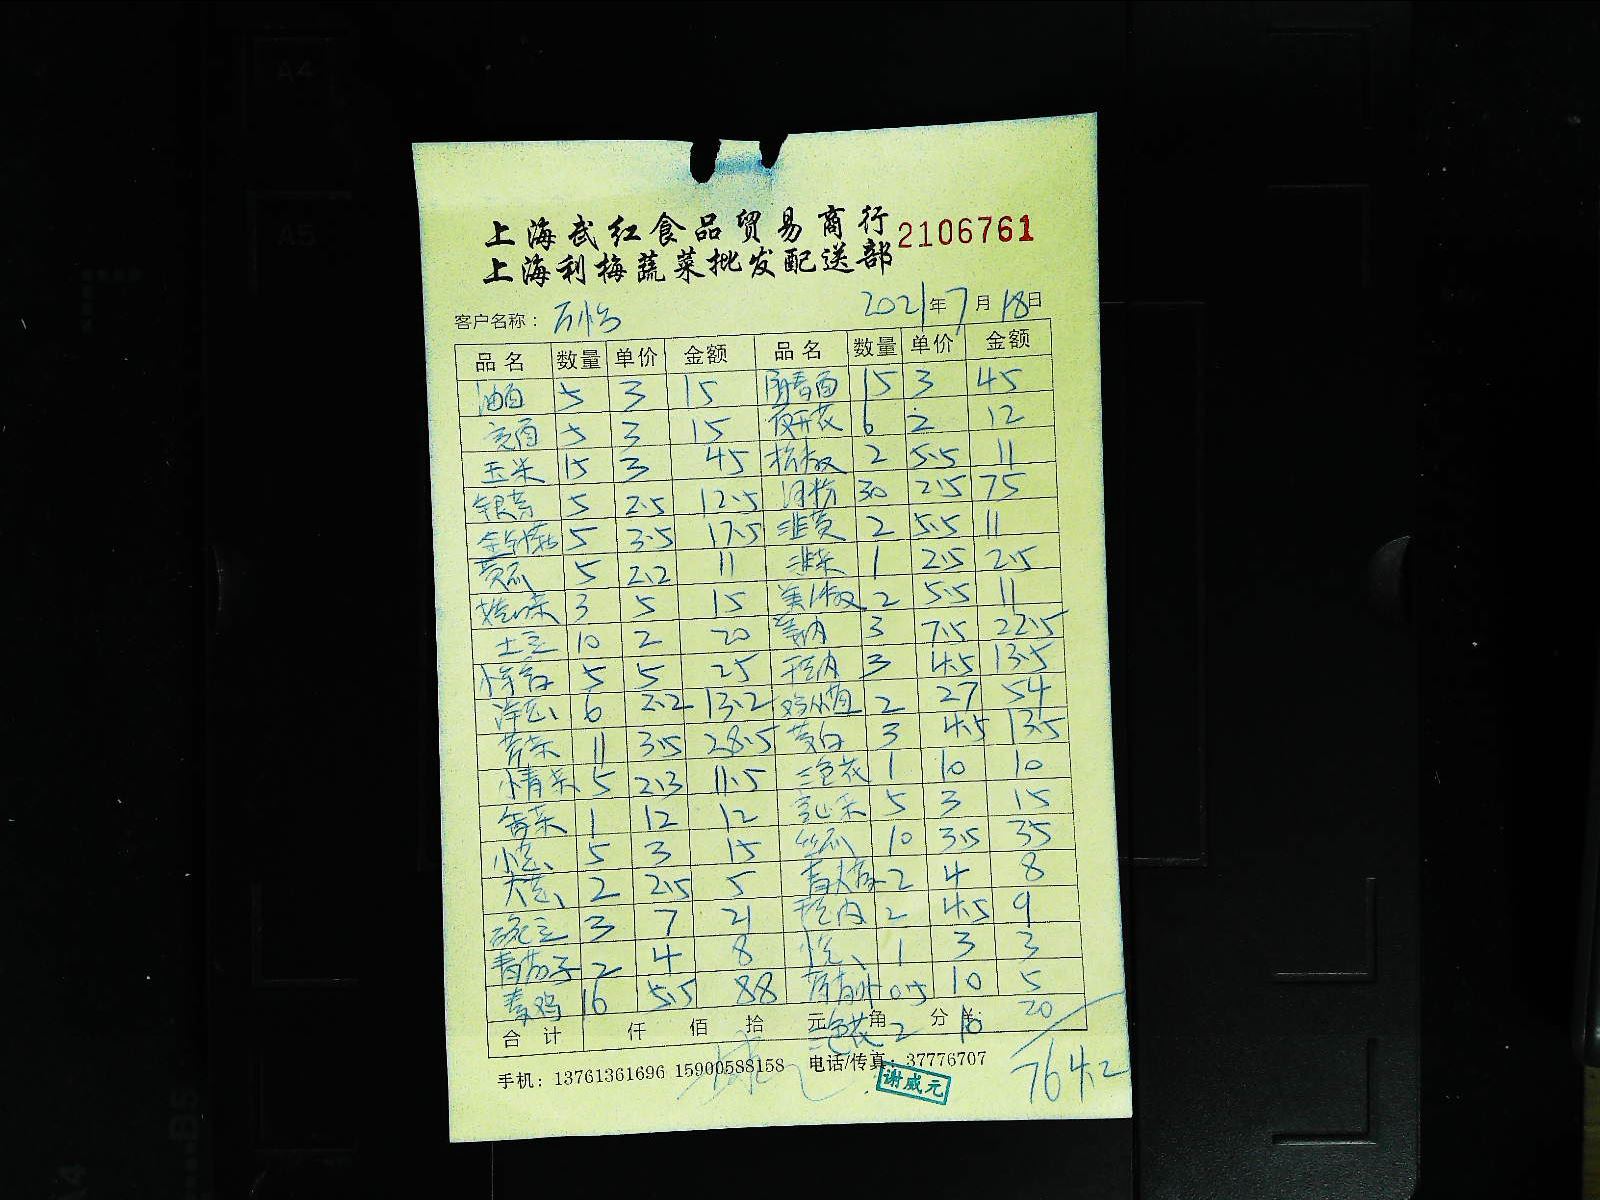 上海武红食品贸易商行
上海利梅蔬菜批发配送部
2106761
客户名称： 2021年7月18日
品名 数量 单价 金额 品名 数量 单价 金额
油面 5 3 15 阳春面 15 3 45
5 3 15 夜开花 6 2 12
玉米 15 3 45 尖椒 2 5.5 11
银芽 5 2.5 12.5 河粉 30 2.5 75
金针菇 5 3.5 17.5 韭黄 2 5.5 11
黄瓜 5 2.2 11 韭菜 1 2.5 2.5
3 5 15 美椒 2 5.5 11
土豆 10 2 20 3 7.5 22.5
5 5 25 3 4.5 13.5
洋葱 6 2.2 13.2 2 27 54
11 3.5 28.5 茭白 3 4.5 13.5
小青菜 5 2.3 11.5 三色花 1 10 10
1 12 12 5 3 15
小葱 5 3 15 丝瓜 10 3.5 35
大葱 2 2.5 5 2 4 8
豌豆 3 7 21 2 4.5 9
青茄子 2 4 8 1 3 3
麦鸡 16 5.5 88 0.5 10 5
合计 仟 佰 拾 元 角 分
三色花 2 10 20
764.2
手机：13761361696 15900588158 电话/传真：37776707
谢威元